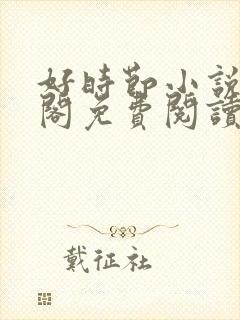 好時節小說
閣免費閱讀
戴征社